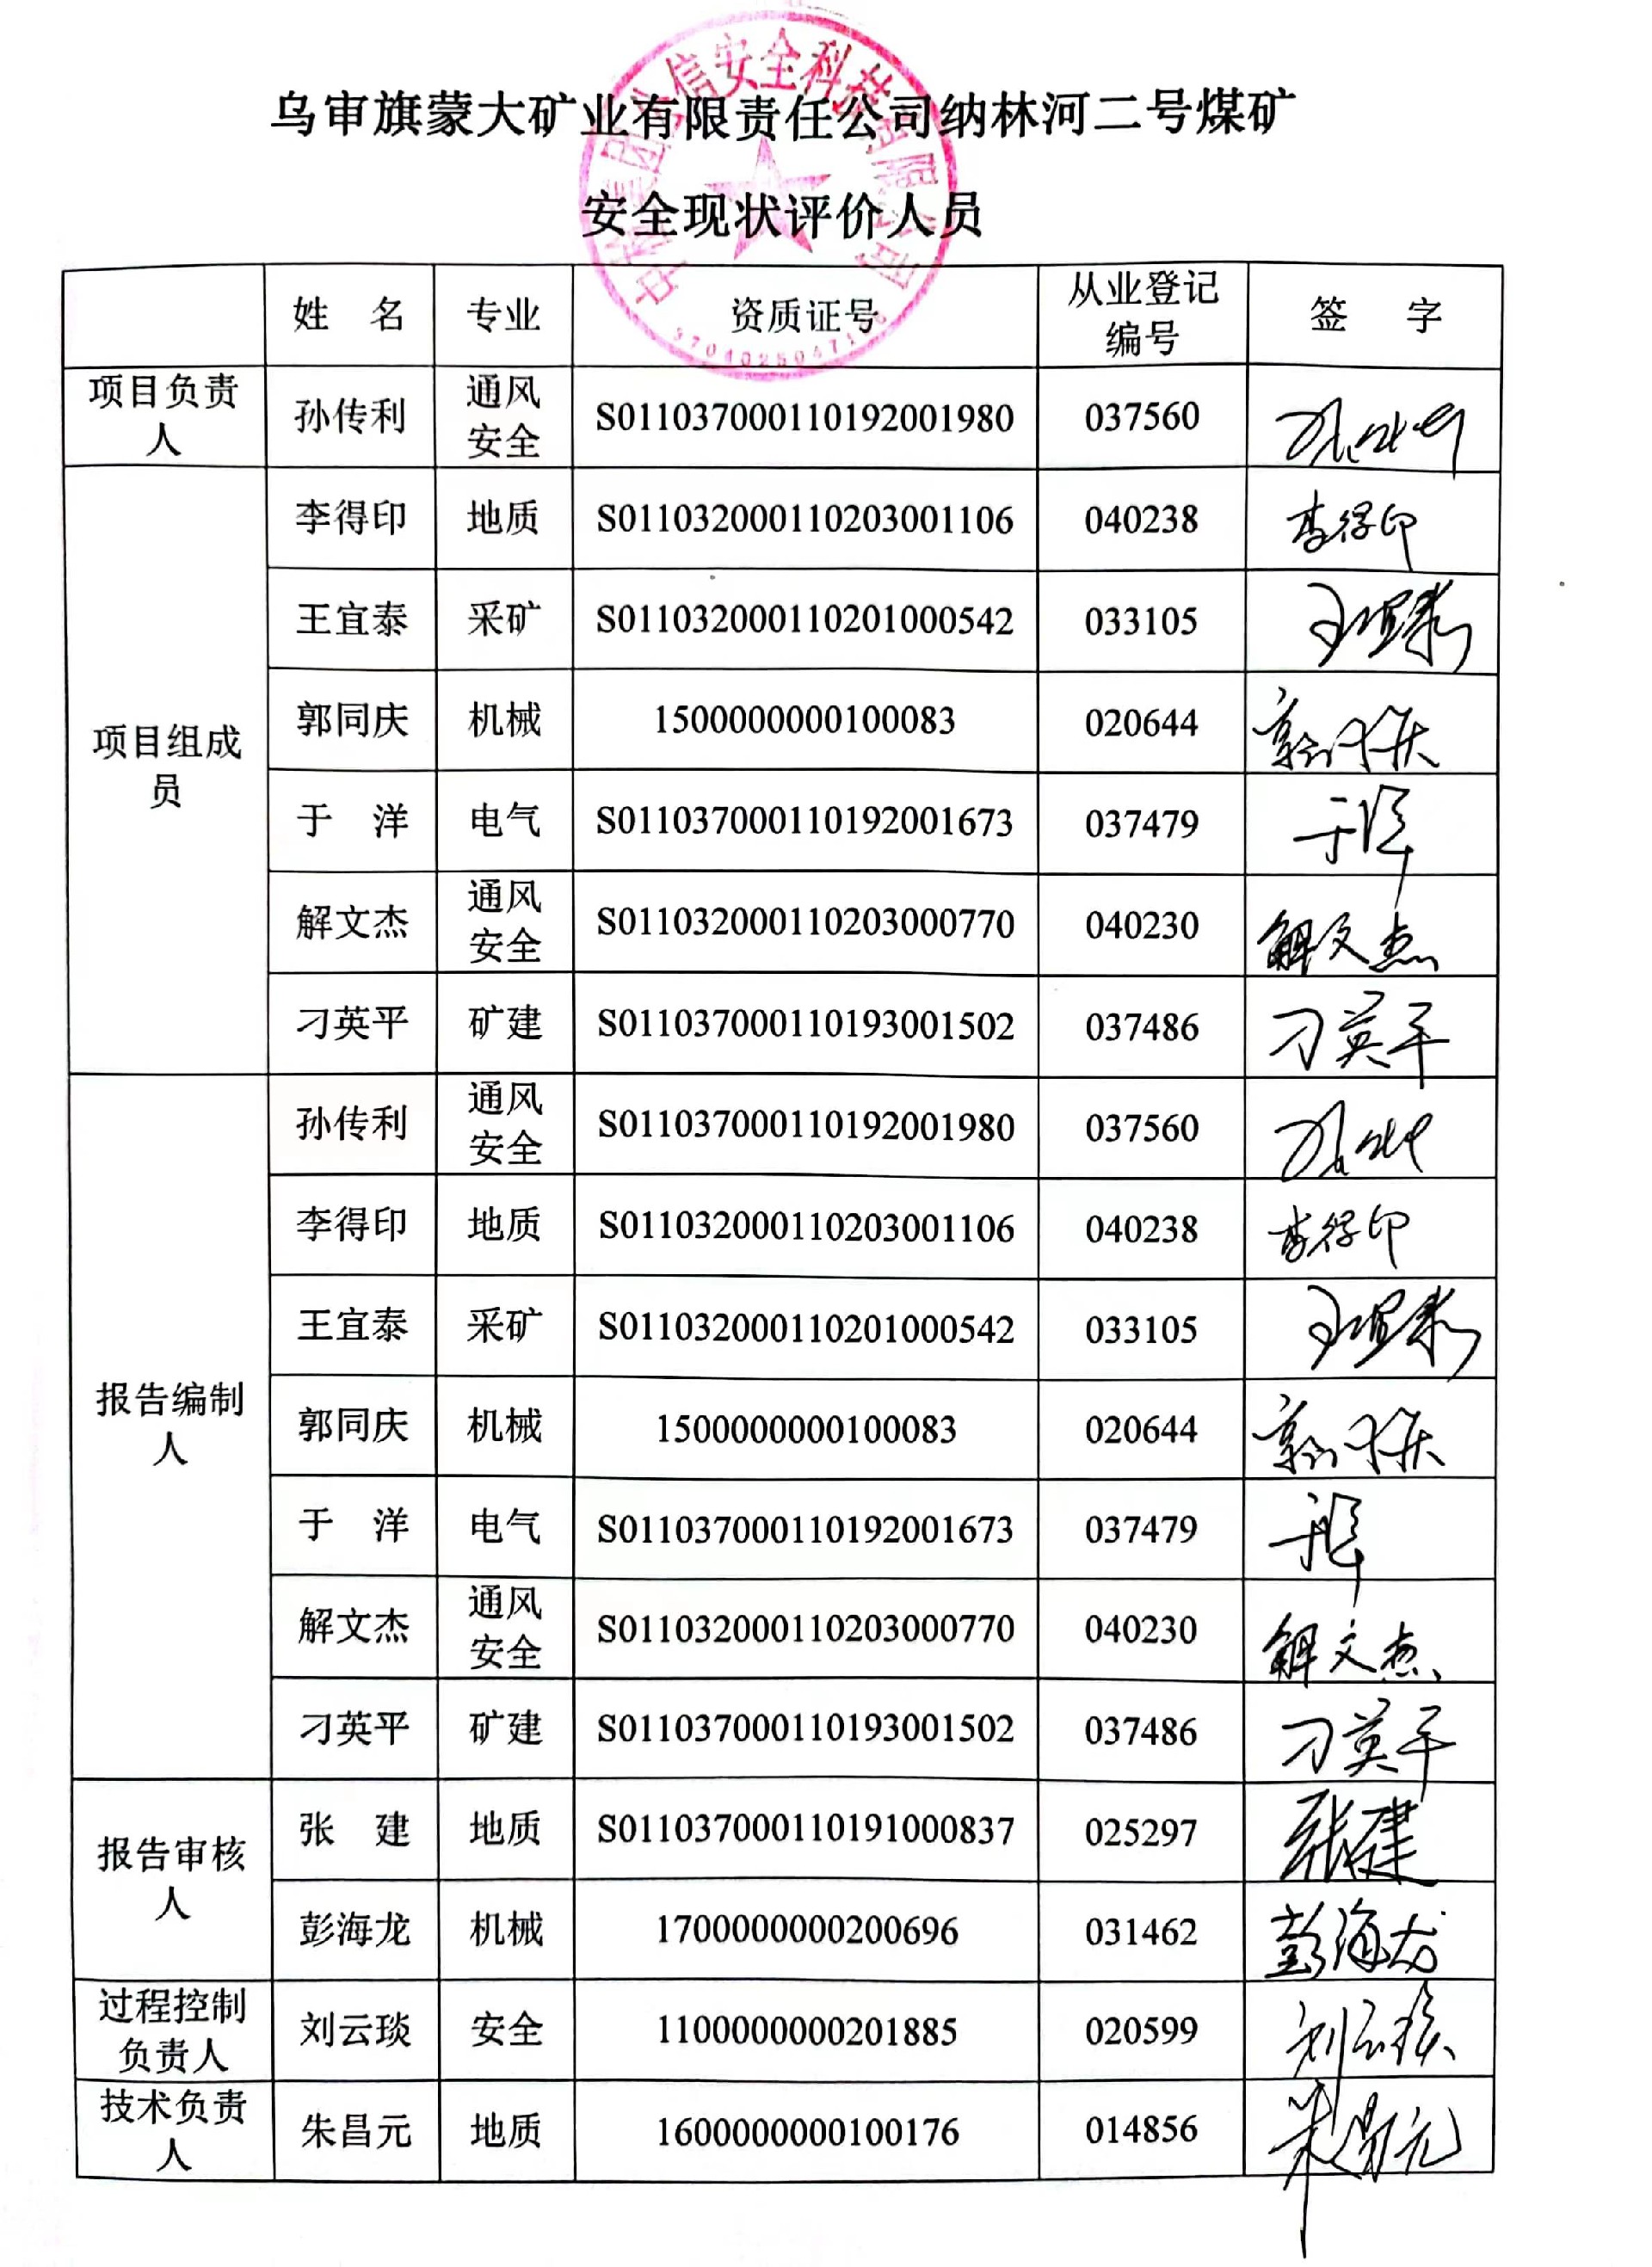 乌审旗蒙大矿业有限责任公司纳林河二号煤矿
安全现状评价人员
姓 名 专业 资质证号 从业登记编号 签 字
项目负责人 孙传利 通风安全 S011037000110192001980 037560 孙传利
项目组成员 李得印 地质 S011032000110203001106 040238 李得印
王宜泰 采矿 S011032000110201000542 033105 王宜泰
郭同庆 机械 1500000000100083 020644 郭同庆
于 洋 电气 S011037000110192001673 037479 于洋
解文杰 通风安全 S011032000110203000770 040230 解文杰
刁英平 矿建 S011037000110193001502 037486 刁英平
报告编制人 孙传利 通风安全 S011037000110192001980 037560 孙传利
李得印 地质 S011032000110203001106 040238 李得印
王宜泰 采矿 S011032000110201000542 033105 王宜泰
郭同庆 机械 1500000000100083 020644 郭同庆
于 洋 电气 S011037000110192001673 037479 于洋
解文杰 通风安全 S011032000110203000770 040230 解文杰
刁英平 矿建 S011037000110193001502 037486 刁英平
报告审核人 张 建 地质 S011037000110191000837 025297 张建
彭海龙 机械 1700000000200696 031462 彭海龙
过程控制负责人 刘云琰 安全 1100000000201885 020599 刘云琰
技术负责人 朱昌元 地质 1600000000100176 014856 朱昌元